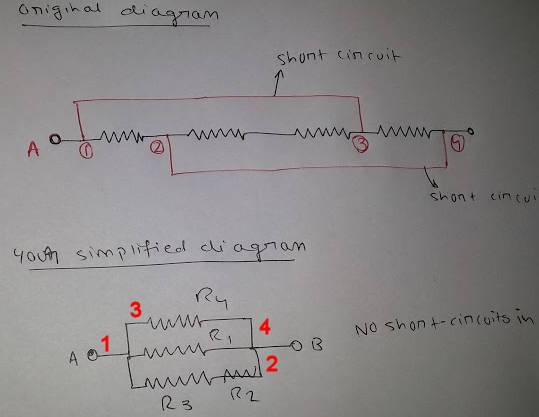 original diagram
short circuit
A 1 2 3 4
short circui
your simplified diagram
3 R4
1 R1 4
A B
2
R3 R2
NO short-circuits in